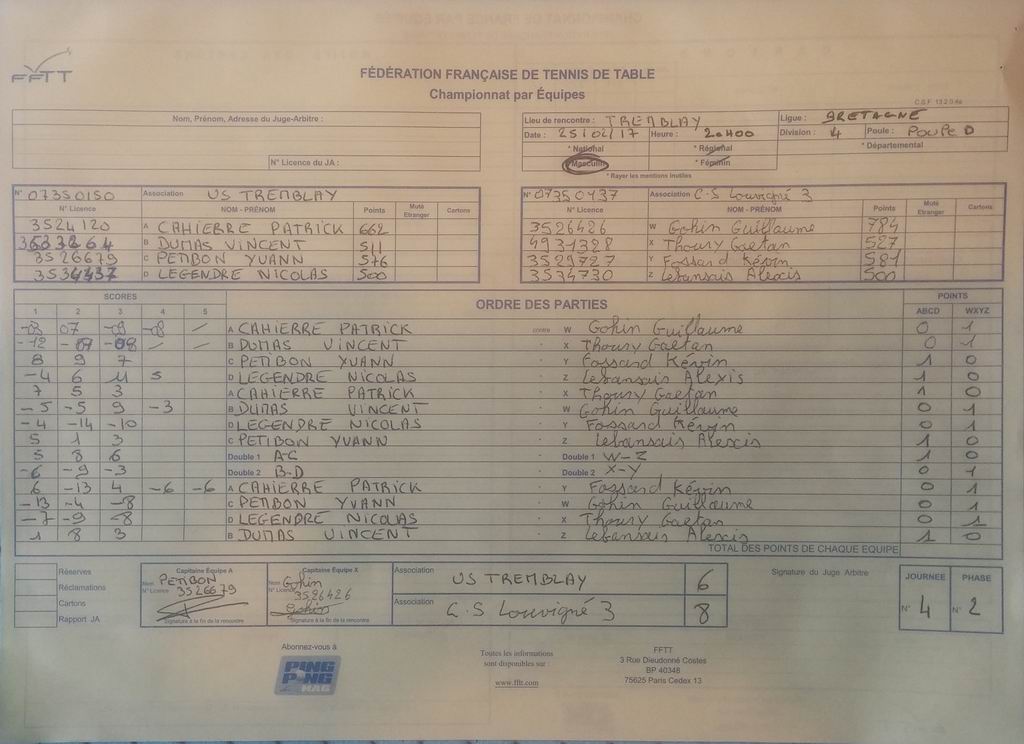 FFTT
FÉDÉRATION FRANÇAISE DE TENNIS DE TABLE
Championnat par Équipes
C.S.F. 13.2.0.4a
Nom, Prénom, Adresse du Juge-Arbitre :
N° Licence du JA :
Lieu de rencontre : TREMBLAY Ligue : BRETAGNE
Date : 25/02/17 Heure : 20H00 Division : 4 Poule : POULE D
* National * Régional * Départemental
* Masculin * Féminin
* Rayer les mentions inutiles
N° 07350150 Association US TREMBLAY
N° Licence NOM - PRÉNOM Points Muté Etranger Cartons
3524120 A CAHIERRE PATRICK 662
3533264 B DUMAS VINCENT 511
3526679 C PETIBON YVANN 576
3534437 D LEGENDRE NICOLAS 500
N° 07350437 Association C.S Louvigné 3
N° Licence NOM - PRÉNOM Points Muté Etranger Cartons
3526426 W Gohin Guillaume 784
4931328 X Thoury Gaetan 527
3529727 Y Fossard Kévin 581
3534730 Z Lebansais Alexis 500
SCORES ORDRE DES PARTIES POINTS
1 2 3 4 5 ABCD WXYZ
-03 07 -09 -08 / A CAHIERRE PATRICK contre W Gohin Guillaume 0 1
-12 -09 -08 / / B DUMAS VINCENT " X Thoury Gaetan 0 1
8 9 7 C PETIBON YVANN " Y Fossard Kévin 1 0
-4 6 11 5 D LEGENDRE NICOLAS " Z Lebansais Alexis 1 0
7 5 3 A CAHIERRE PATRICK " X Thoury Gaetan 1 0
-5 -5 9 -3 B DUMAS VINCENT " W Gohin Guillaume 0 1
-4 -14 -10 D LEGENDRE NICOLAS " Y Fossard Kévin 0 1
5 1 3 C PETIBON YVANN " Z Lebansais Alexis 1 0
5 8 6 Double 1 A-C " Double 1 W-Z 1 0
-6 -9 -3 Double 2 B-D " Double 2 X-Y 0 1
6 -13 4 -6 -6 A CAHIERRE PATRICK " Y Fossard Kévin 0 1
-13 -4 -8 C PETIBON YVANN " W Gohin Guillaume 0 1
-7 -9 -8 D LEGENDRE NICOLAS " X Thoury Gaetan 0 1
1 8 3 B DUMAS VINCENT " Z Lebansais Alexis 1 0
TOTAL DES POINTS DE CHAQUE EQUIPE
Réserves
Réclamations
Cartons
Rapport JA
Capitaine Équipe A
Nom PETIBON
N° Licence 3526679
Signature à la fin de la rencontre
Capitaine Équipe X
Nom Gohin
N° Licence 3526426
Gohin
Signature à la fin de la rencontre
Association US TREMBLAY 6
Association C.S Louvigné 3 8
Signature du Juge Arbitre
JOURNEE PHASE
N° 4 N° 2
Abonnez-vous à
PING PONG MAG
Toutes les informations
sont disponibles sur :
www.fftt.com
FFTT
3 Rue Dieudonné Costes
BP 40348
75625 Paris Cedex 13